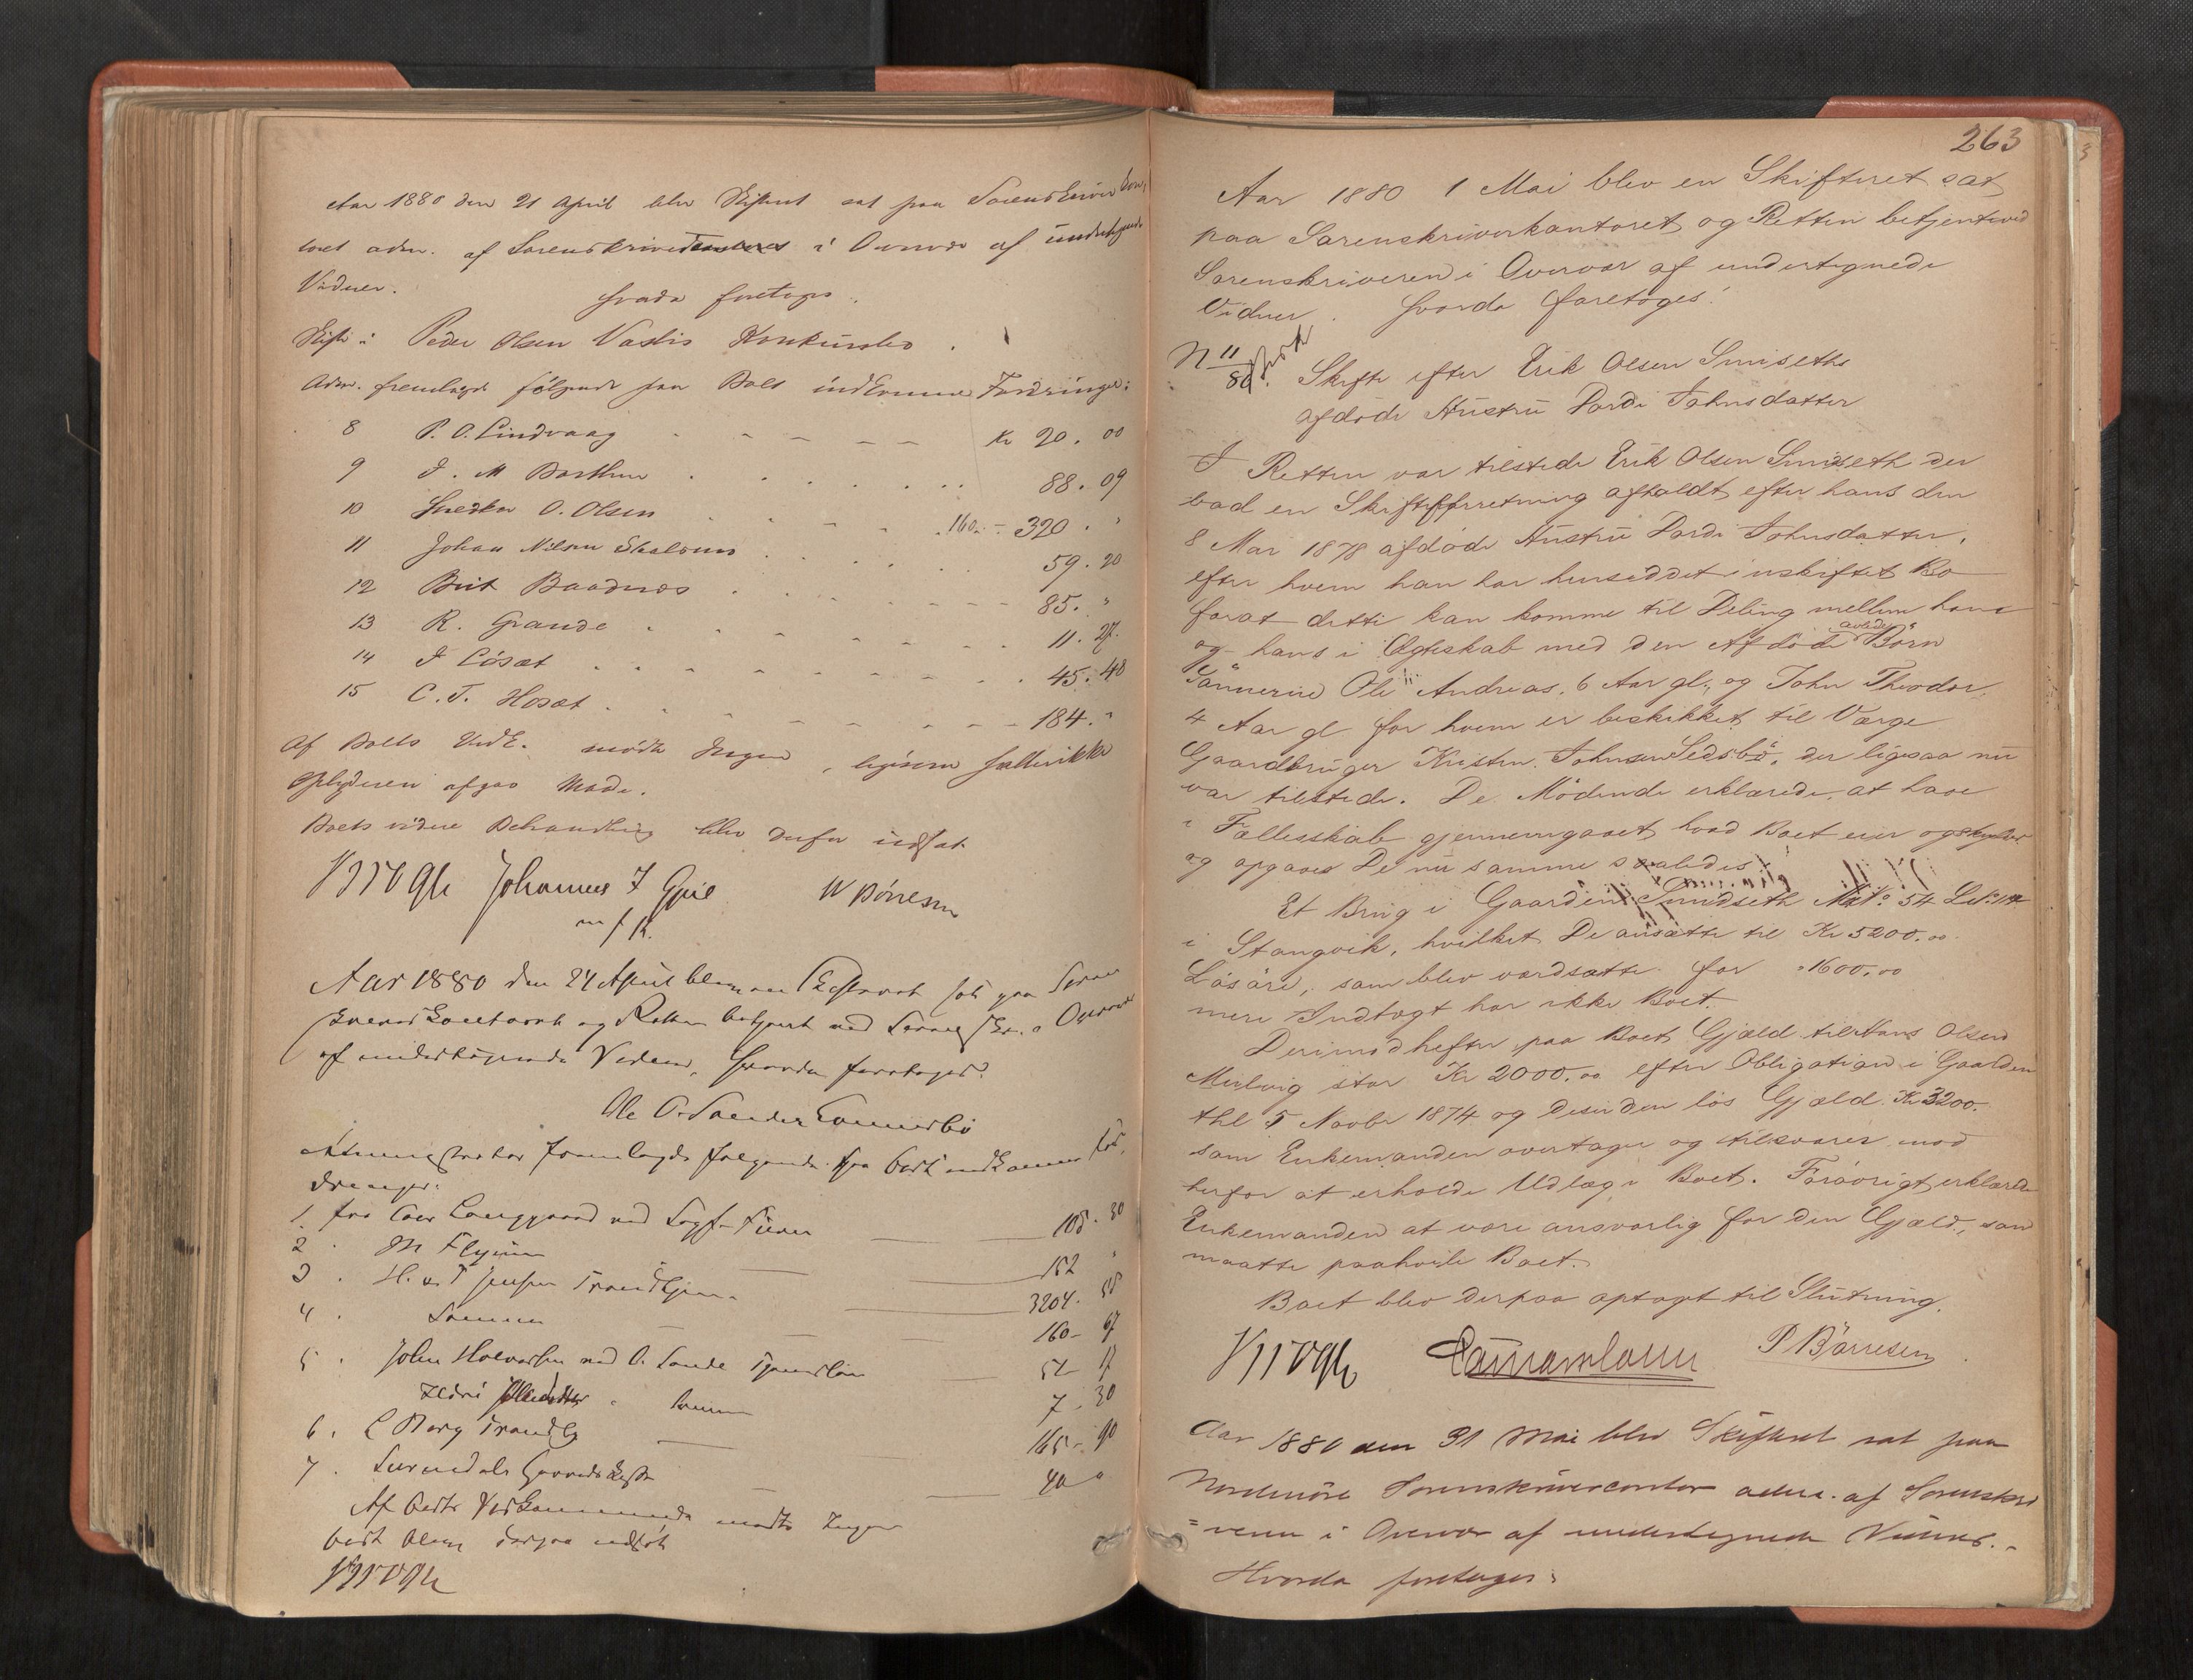 Aar 1880 den 21 April blev Skifteret sat paa Sorenskriverkon-
toret adm. af Sorenskriveren i Overvær af undertegnede
Vidner.
Hvorda foretoges:
Skifte i Peder Olsen Vaslis Konkursbo.
Adm. fremlagde følgende paa Boets indkomne Fordringer:
8 P. O. Lindvaag Kr 20.00
9 J. M Barthen 88.09
10 Snedker O. Olsen 160.- 320. "
11 Johan Nilsen Skalvner 59.20
12 Brit Baadnes 85. "
13 R. Grande 11.27.
14 J Løsæt 45.40
15 C. T. Hosæt 184. "
Af Boets Vedk. mødte Ingen, ligesom heller ikke
afgav Møde.
Boets videre Behandling blev derfor udsat
Krogh Johannes J W Børresen
m f P.
Aar 1880 den 24 April blev en Skifteret sat paa Soren-
skriverkontoret og Retten betjent ved Sorenskr. i Overvær
af undertegnede Vidner, Hvorda foretoges:
Ole O. Sande
fremlagde følgende paa Boet indkomne For-
dringer:
1. fra Langgaard ved Sagf. 105.30
2 " M 152 "
3 . H. & T Jensen Trondhjem 3204.
4 . Samme 160 - 67
5 . John Halvorsen ved O. Sande 52 - 17
Samme 7.30
6. C Borg Trondhj 165 - 90
7. Surendals Herredskasse 40 "
Af Boets Vedkommende mødte Ingen
Boet blev derpaa udsat
Krogh
263
Aar 1880 1 Mai blev en Skifteret sat
paa Sorenskriverkontoret og Retten betjent ved
Sorenskriveren i Overvær af undertegnede
Vidner. Hvorda foretoges:
N 11/80. Skifte efter Erik Olsen Smiseths
afdøde Hustru Dordi Johnsdatter
I Retten var tilstede Erik Olsen Smidseth der
bad en Skifteforretning afholdt efter hans den
8 Mai 1878 afdøde Hustru Dordi Johnsdatter,
efter hvem han har hensiddet i uskiftet Bo
forat dette kan komme til Deling mellem ham
og hans i Ægteskab med den Afdøde avlede Børn
Sønnerne Ole Andreas, 6 Aar gl., og John Theodor
4 Aar gl for hvem er beskikket til Værge
Gaardbruger Kristen Johnsen Sedsbø, der ligesaa nu
var tilstede. De Mødende erklærede, at have
i Fællesskab gjennemgaaet, hvad Boet eier og skylder
og opgaves De nu samme saaledes:
Et Brug i Gaarden Smidseth Mt. No. 54 L.No.
i Stangvik, hvilket De ansætte til Kr 5200.00
Løsøre, som blev værdsatte for " 1600.00
mere Indtægt har ikke Boet.
Derimod hefter paa Boet Gjæld til Hans Olsen
Mielvig stor Kr 2000.00 efter Obligation i Gaarden
thl 5 Novbr 1874 og desuden løs Gjæld Kr 3200.
som Enkemanden overtager og tilsvarer mod
herfor at erholde Udlæg i Boet. Forøvrigt erklærede
Enkemanden at være ansvarlig for den Gjæld, som
maatte paahvile Boet.
Boet blev derpaa optaget til Slutning.
Krogh P Børresen
Aar 1880 den 31 Mai blev Skifteret sat paa
Nordmøre Sorenskrivercontor adm. af Sorenskri
=veren i Overvær af undertegnede Vidner. -
Hvorda foretoges: